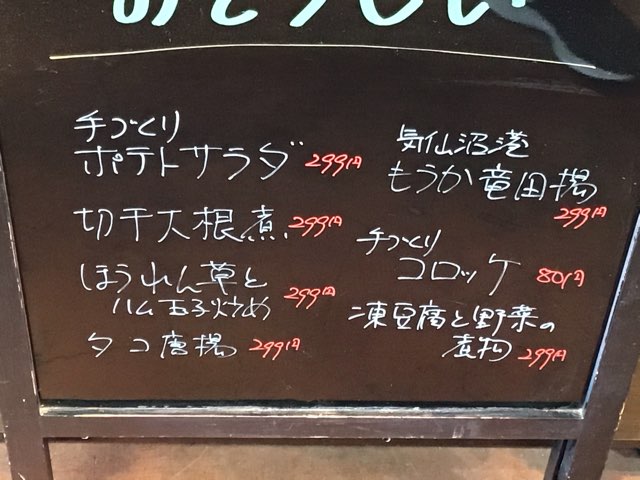 手づくり
ポテトサラダ 299円
切干大根煮 299円
ほうれん草と
ハム玉子炒め 299円
タコ唐揚 299円
気仙沼港
もうか竜田揚
299円
手づくり
コロッケ 80円
凍豆腐と野菜の
煮物 299円